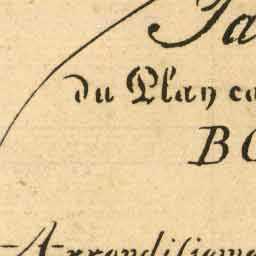 Ta
du Plan ca
BO
Arrondisseme